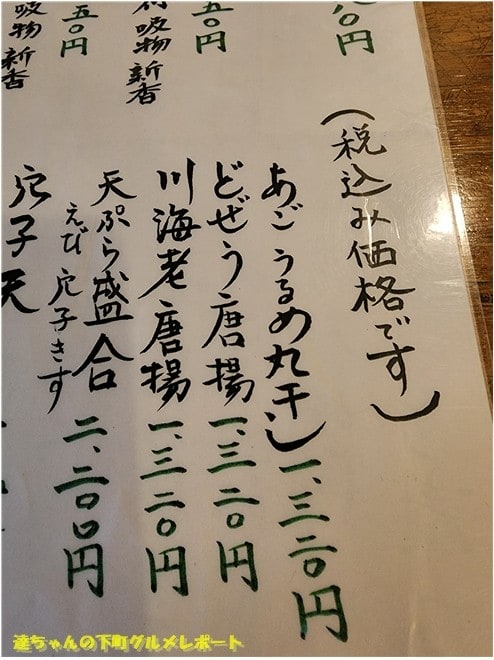 八〇円
（税込み価格です）
五〇円
吸物 新香
五〇円
吸物 新香
あご うるめ丸干し 一、三二〇円
どぜう唐揚 一、三二〇円
川海老唐揚 一、三二〇円
天ぷら盛合 二、二〇〇円
えび 穴子 きす
穴子天
達ちゃんの下町グルメレポート